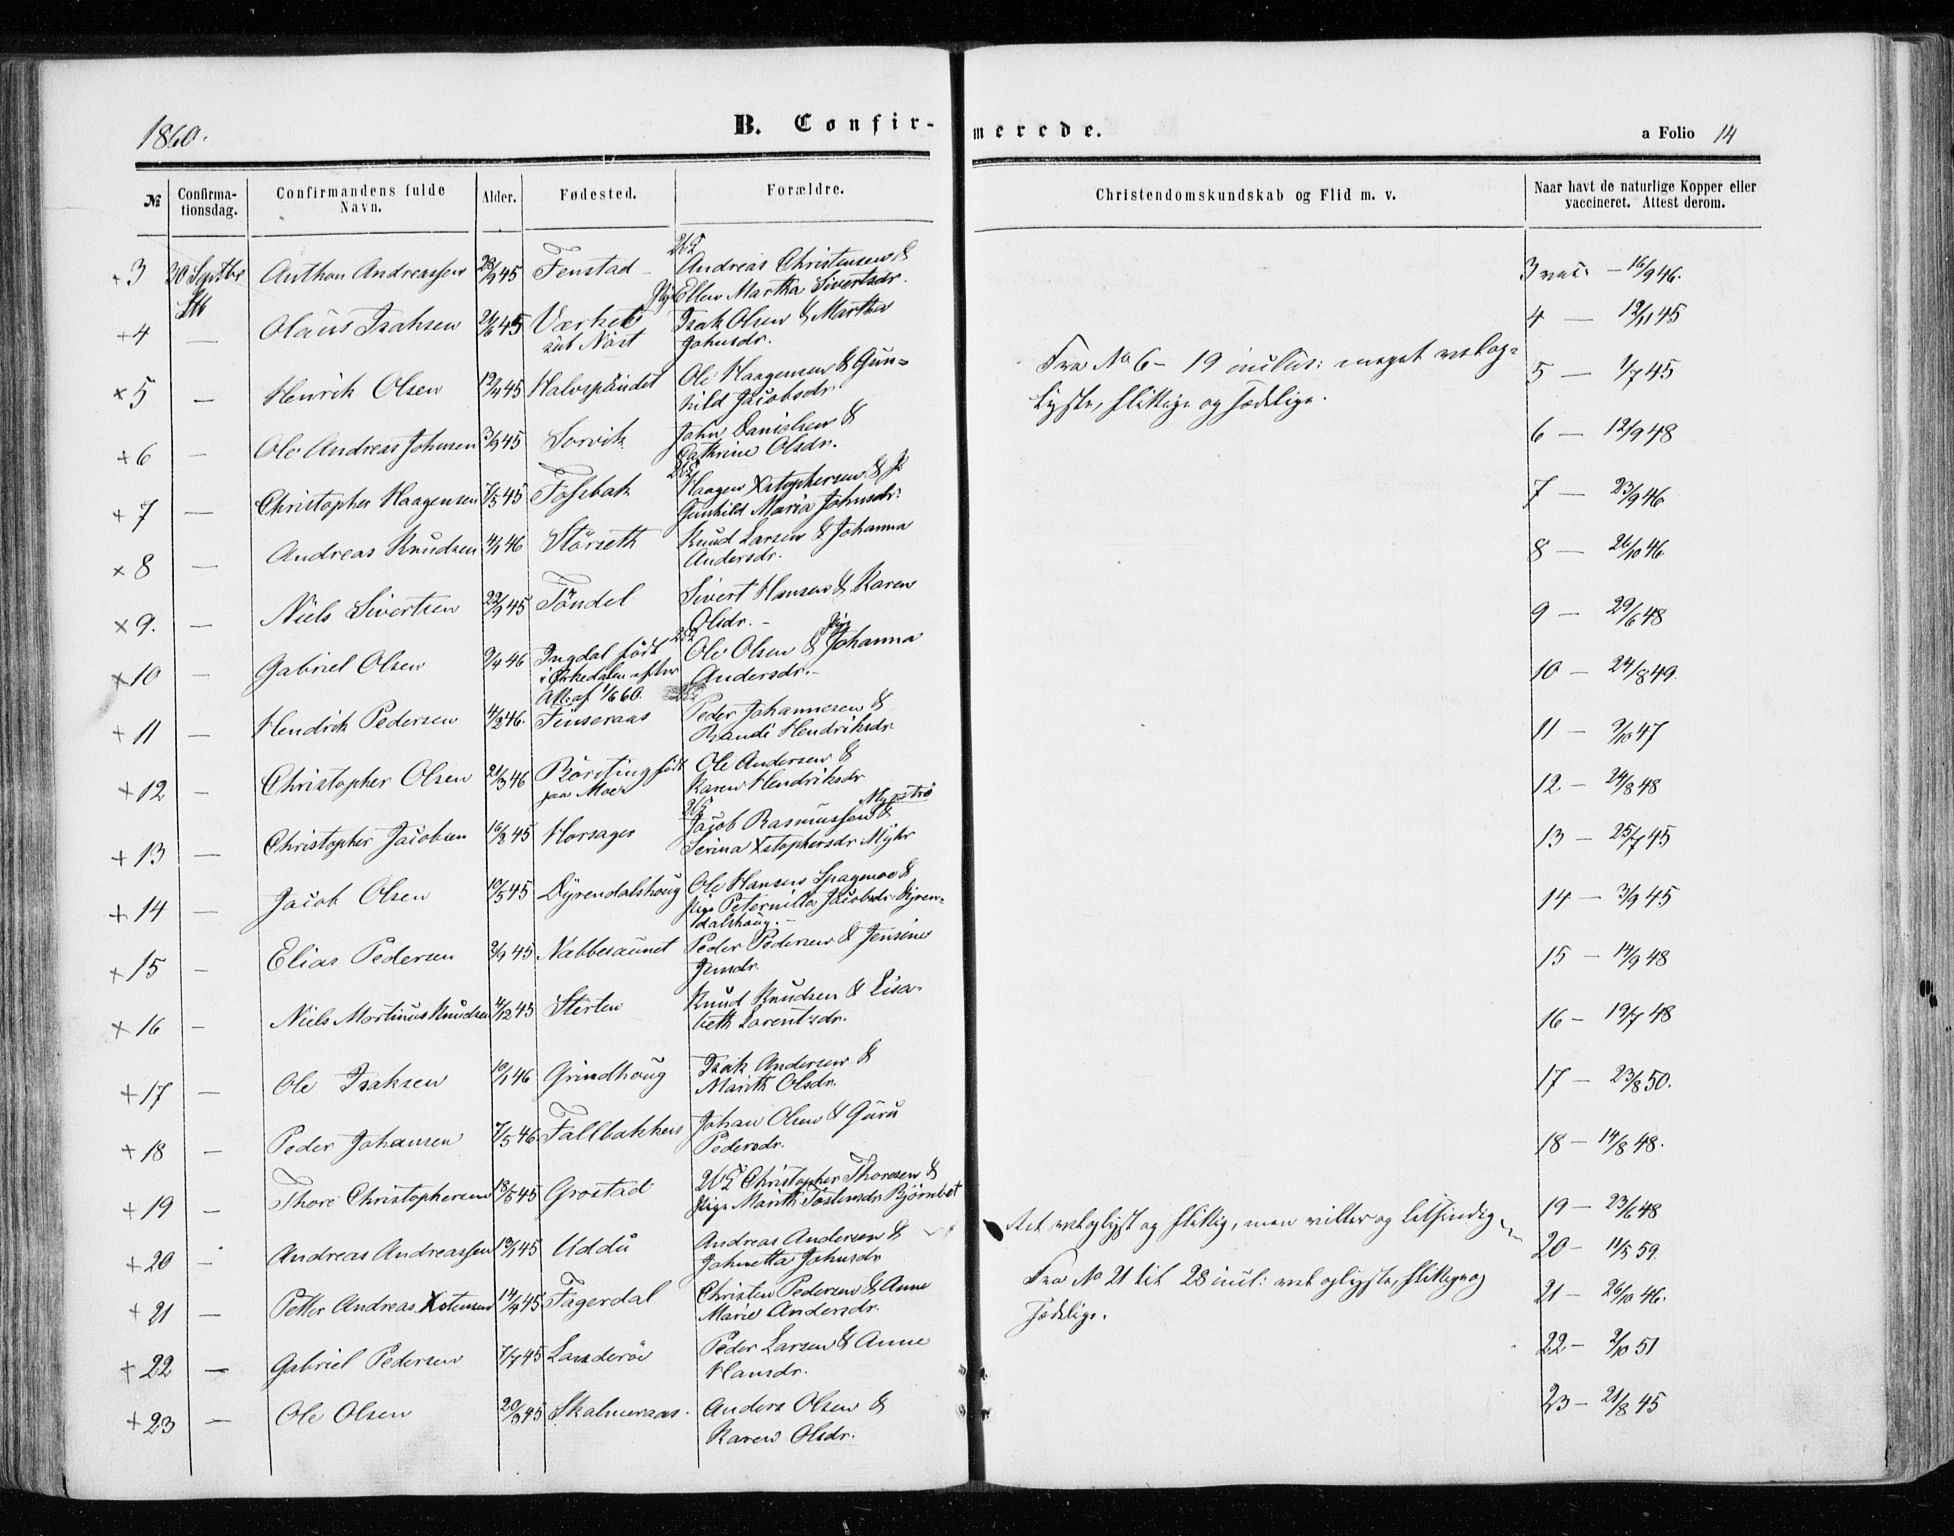 1860.
B. Confir-
merede.
a Folio 14
№ Confirma-tionsdag. Confirmandens fulde Navn. Alder. Fødested. Forældre. Christendomskundskab og Flid m. v. Naar havt de naturlige Kopper eller vaccineret. Attest derom.
+ 3 30 Septbr Anthon Andreassen 28/9 45 Fenstad Andreas Christensen &
Ellen Martha Sivertsdr. 3 vac: - 16/9 46.
+ 4 — Olaus Isaksen 24/6 45 Værket Isak Olsen & Martha
Johnsdr. 4 — 12/11 45
x 5 — Henrik Olsen 12/4 45 Halvspandet Ole Haagensen & Gun=
hild Jacobsdr 5 — 1/7 45
Fra No 6 - 19 inclus: meget vel op=
lyste, flittige og sædelige.
+ 6 — Ole Andreas Johnsen 3/9 45 Sorvik John Danielsen &
Cathrine Olsdr. 6 — 12/9 48
+ 7 — Christopher Haagensen 7/5 45 Fossbak Haagen Xstophersen &
Gunhild Maria Johnsdr. 7 — 23/9 46
x 8 — Andreas Knudsen 4/1 46 Størseth Knud Larsen & Johanna
Andersdr. 8 — 26/10 46
x 9. — Niels Sivertsen 22/9 45 Tøndel Sivert Hansen & Karen
Olsdr. 9 — 29/6 48
x 10 — Gabriel Olsen 9/4 46 Ingdal født
i Orkedalen efter
Att. af 1/6 60. Ole Olsen & Johanna
Andersdr. 10 — 24/8 49.
+ 11 — Hendrik Pedersen 4/2 46. Finseraas Peder Johannesen &
Randi Hendriksdr. 11 — 9/10 47
+ 12 — Christopher Olsen 21/3 46 Børsting født
paa Moe Ole Andersen &
Karen Hendriksdr 12 — 24/8 48
+ 13 — Christopher Jacobsen 16/2 45 Horsages Jacob Rasmussen &
Serina Xstophersdr Myhr 13 — 25/7 45
+ 14 — Jacob Olsen 10/5 45 Dyrendalshoug Ole Hansen Spagmoe &
Pige Peternilla Jacobsdr. Dyren=
dalshoug. 14 — 3/9 45
+ 15 — Elias Pedersen 2/9 45 Næbbesaunet Peder Pedersen & Jensine
Jensdr. 15 — 14/9 48
x 16 — Niels Martinus Knudsen 4/12 45 Sterten Knud Knudsen & Lisa-
beth Lorentsdr. 16 — 19/7 48
+ 17 — Ole Isaksen 10/1 46 Grindhoug Isak Andersen &
Marith Olsdr. 17 — 23/8 50.
+ 18 — Peder Johansen 7/5 46 Fallbakken Johan Olsen & Guru
Pedersdr. 18 — 14/8 48.
+ 19 — Thore Christophersen 18/5 45 Grostad Christopher Thoresen &
Pige Marith Tostensdr Bjørnbet 19 — 23/6 48
+ 20 Andreas Andreassen 19/1 45 Uddu Andreas Andersen &
Johnetta Johnsdr Ret vel oplyst og flittig, men vild og letsindig 20 — 11/5 59.
+ 21 — Petter Andreas Xstensen 14/4 45 Fagerdal Christen Pedersen & Anne
Marie Andersdr. Fra No 21 til 28 incl: vel oplyste, flittige og
sædelige. 21 — 26/10 46.
+ 22 — Gabriel Pedersen 7/7 45 Landerøe Peder Larsen & Anne
Hansdr. 22 — 2/10 51
+ 23 — Ole Olsen 20/3 45 Skalmeraas. Anders Olsen &
Karen Olsdr. 23 — 21/8 45